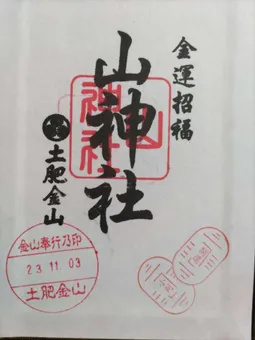 金運招福
山神社
山神社
土肥金山
金山奉行乃印
23.11.03
土肥金山